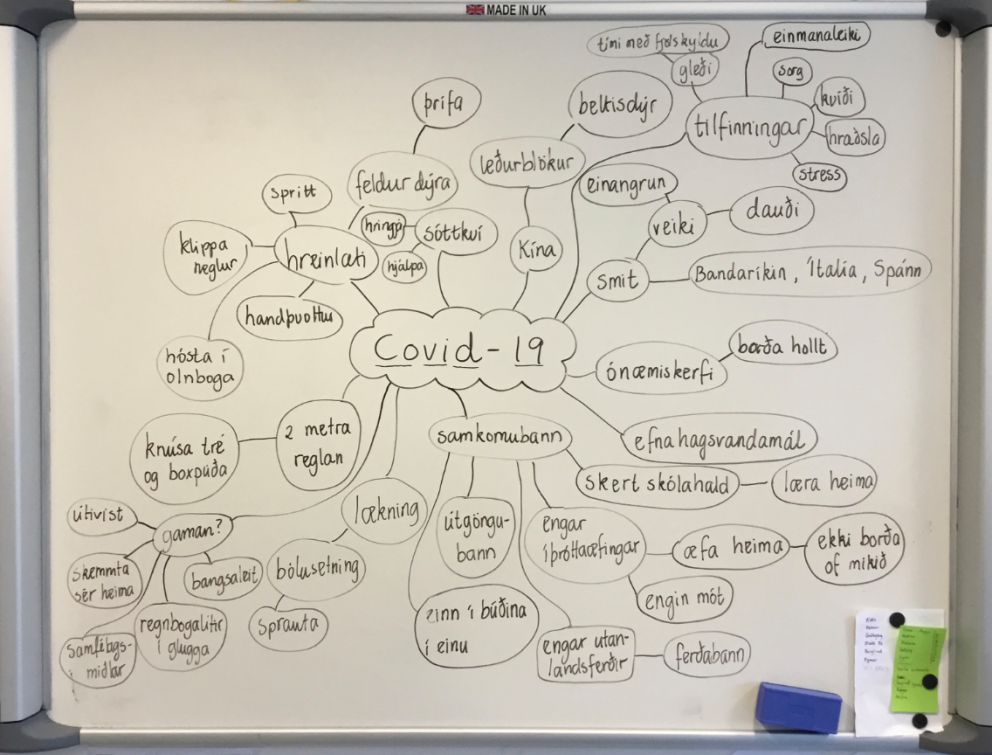 MADE IN UK
tími með fjölskyldu
gleði
einmanaleiki
sorg
kvíði
hræðsla
stress
tilfinningar
þrífa
beltisdýr
leðurblökur
feldur dýra
spritt
hringja
sóttkví
hjálpa
klippa
neglur
hreinlæti
Kína
einangrun
veiki
dauði
smit
Bandaríkin, Ítalía, Spánn
handþvottur
hósta í
olnboga
Covid-19
ónæmiskerfi
borða hollt
knúsa tré
og boxpúða
2 metra
reglan
samkomubann
efnahagsvandamál
skert skólahald
læra heima
útivist
gaman?
lækning
útgöngu-
bann
engar
íþróttaæfingar
æfa heima
ekki borða
of mikið
skemmta
sér heima
bangsaleit
bólusetning
engin mót
samfélags-
miðlar
regnbogalitir
í glugga
sprauta
einn í búðina
í einu
engar utan-
landsferðir
ferðabann